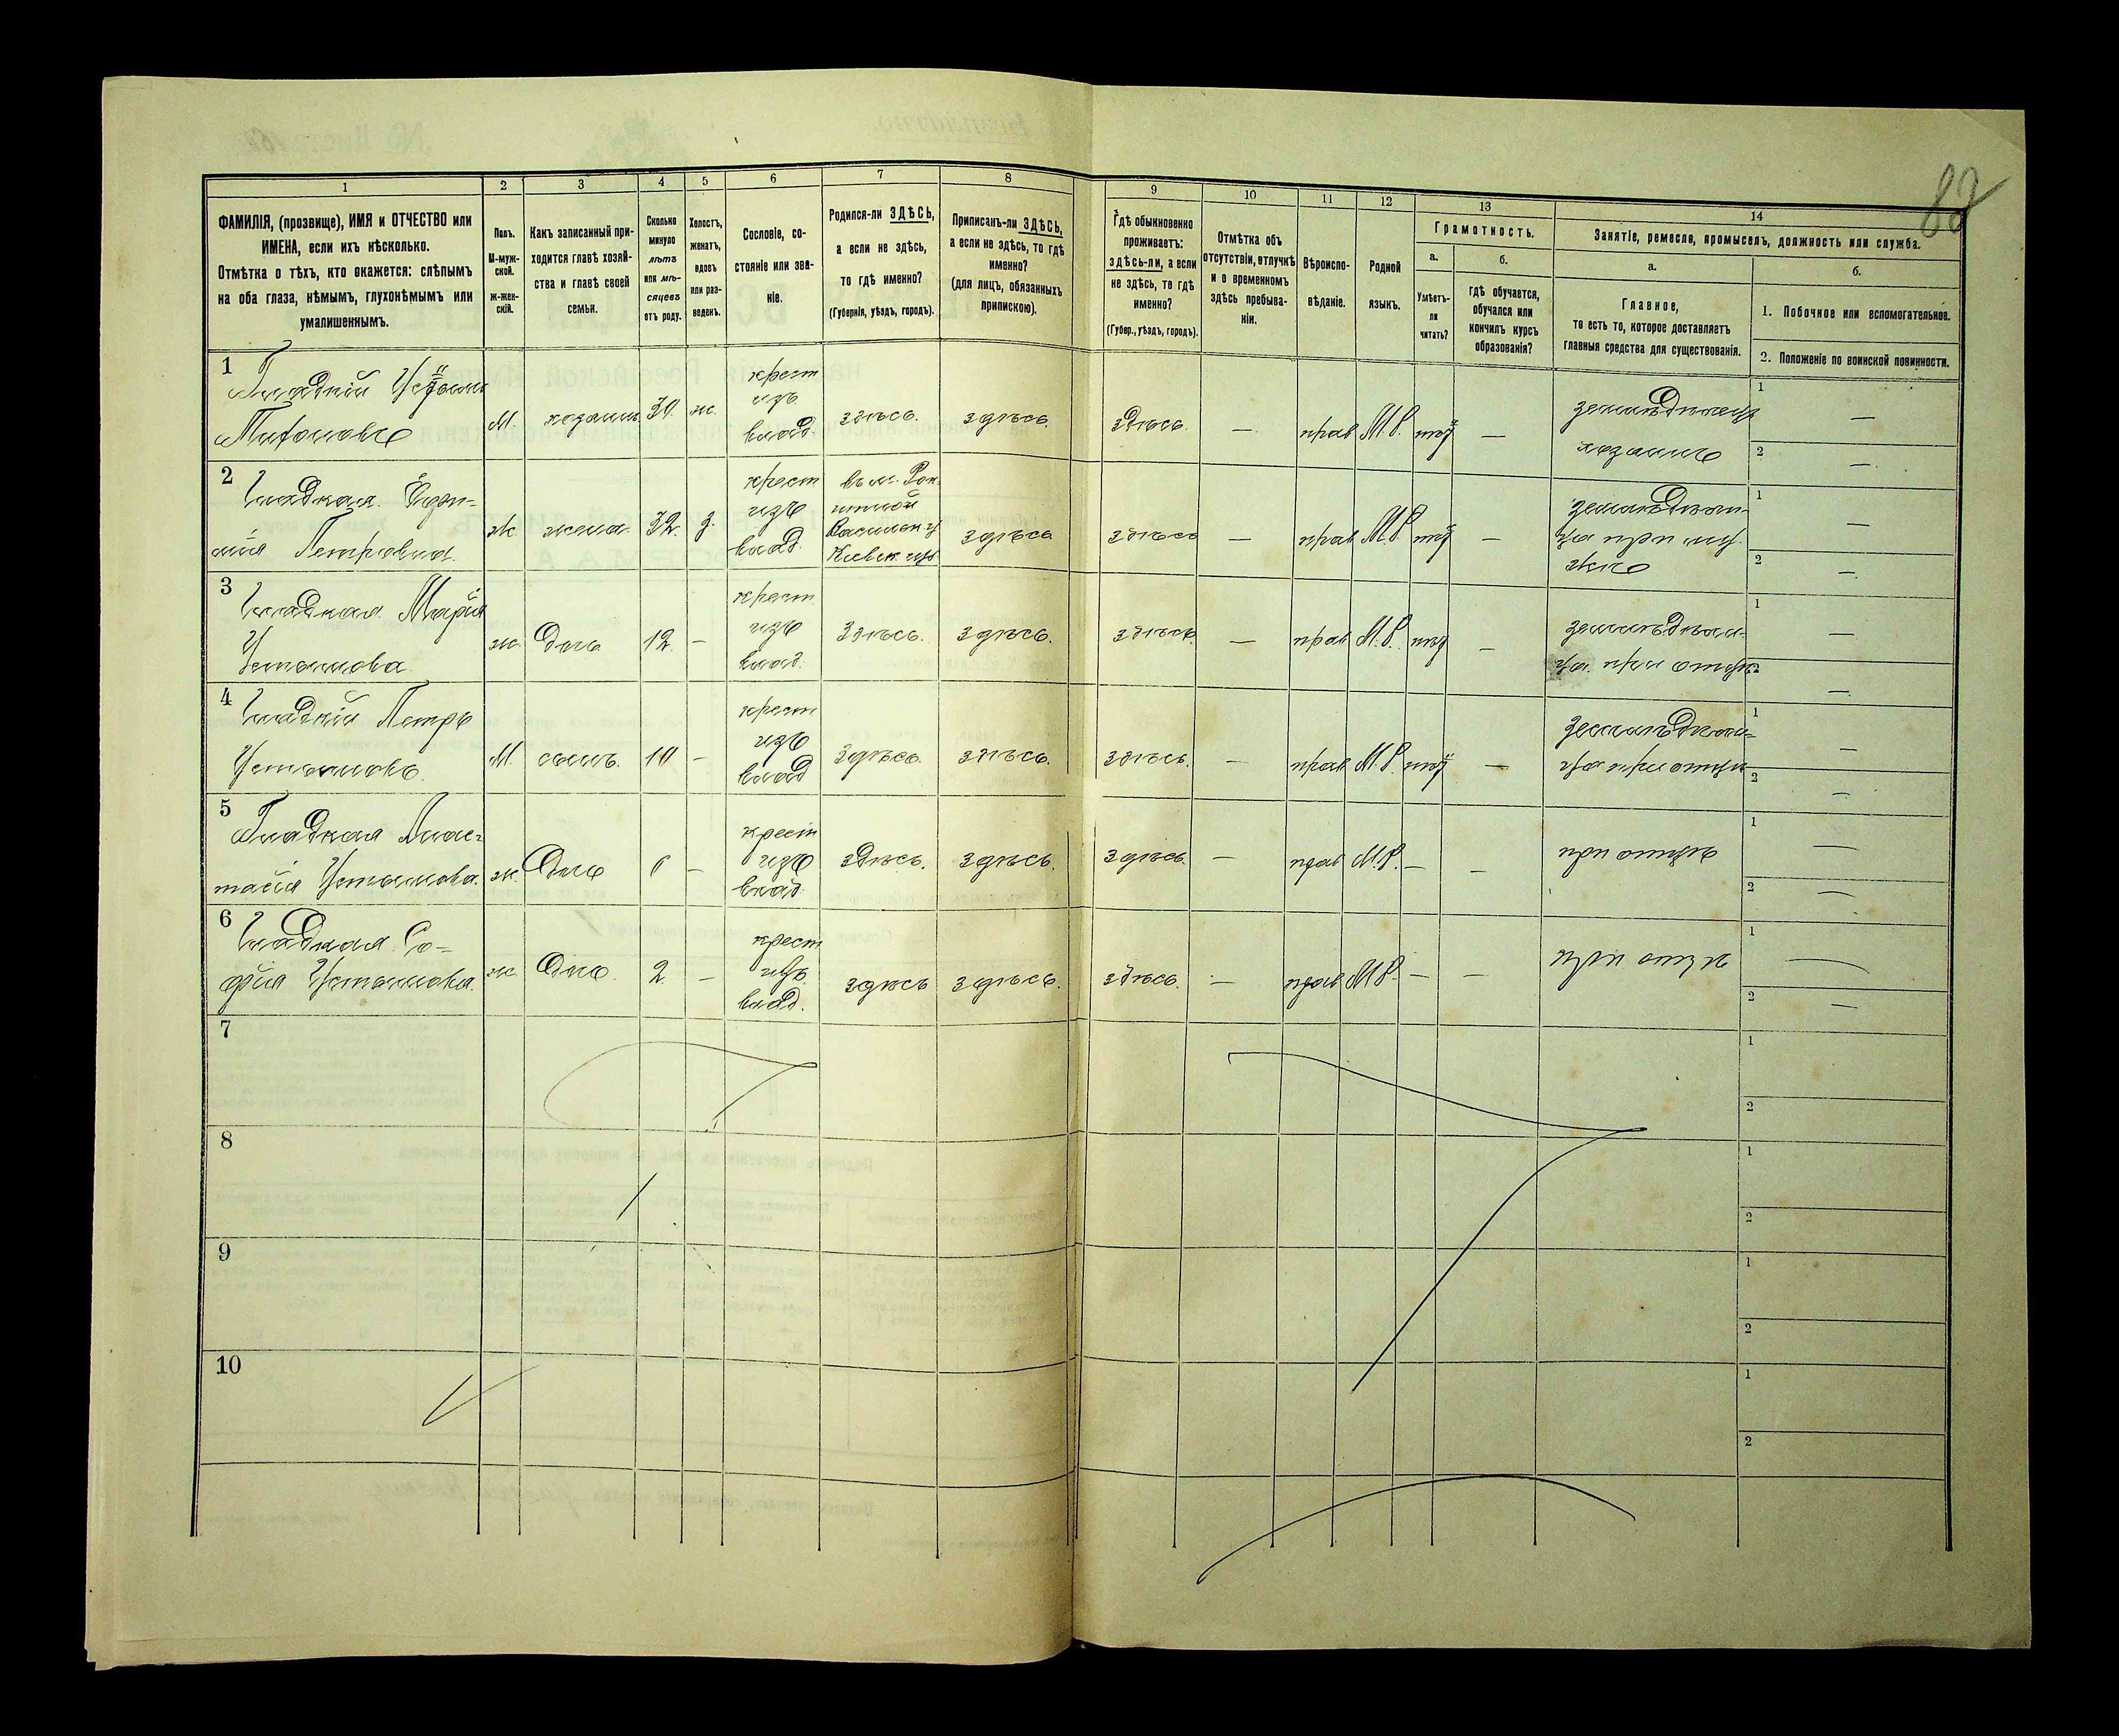 82
1 2 3 4 5 6 7 8 9 10 11 12 13 14
ФАМИЛІЯ, (прозвище), ИМЯ и ОТЧЕСТВО или
ИМЕНА, если ихъ нѣсколько.
Отмѣтка о тѣхъ, кто окажется: слѣпымъ
на оба глаза, нѣмымъ, глухонѣмымъ или
умалишеннымъ.
Полъ.
М-муж-
ской.
ж-жен-
скій.
Какъ записанный при-
ходится главѣ хозяй-
ства и главѣ своей
семьи.
Сколько
минуло
лѣтъ
или мѣ-
сяцевъ
отъ роду.
Холостъ,
женатъ,
вдовъ
или раз-
веденъ.
Сословіе, со-
стояніе или зва-
ніе.
Родился-ли ЗДѢСЬ,
а если не здѣсь,
то гдѣ именно?
(Губернія, уѣздъ, городъ).
Приписанъ-ли ЗДѢСЬ,
а если не здѣсь, то гдѣ
именно?
(для лицъ, обязанныхъ
припискою).
Гдѣ обыкновенно
проживаетъ:
здѣсь-ли, а если
не здѣсь, то гдѣ
именно?
(Губер., уѣздъ, городъ).
Отмѣтка объ
отсутствіи, отлучкѣ
и о временномъ
здѣсь пребыва-
ніи.
Вѣроиспо-
вѣданіе.
Родной
языкъ.
Грамотность.
а.
Умѣетъ-
ли
читать?
б.
гдѣ обучается,
обучался или
кончилъ курсъ
образованія?
Занятіе, ремесло, промыселъ, должность или служба.
а.
Главное,
то есть то, которое доставляетъ
главныя средства для существованія.
б.
1. Побочное или вспомогательное.
2. Положеніе по воинской повинности.
1
Гладкій
М. хозяинъ ж. крест изъ влад здѣсь. здѣсь. здѣсь. — прав М.Р. нѣтъ — земледѣлецъ хозяинъ 1 — 2 —
2
Гладкая
Петровна. ж. жена 32. з. крест изъ влад. здѣсь здѣсь — прав М.Р. нѣтъ — при му- 1 — 2 —
3
Гладкая Марія
Устимова ж. дочь 12. — крест изъ влад. здѣсь. здѣсь. здѣсь. — прав М.Р. нѣтъ — при отцѣ 1 — 2 —
4
Гладкій Петръ
Устимовъ. М. сынъ. 10 — крест изъ влад здѣсь. здѣсь. здѣсь. — прав М.Р. нѣтъ — при отцѣ 1 — 2 —
5
Гладкая Анас-
тасія Устимова. ж. дочь — крест изъ влад. здѣсь. здѣсь. здѣсь. — прав М.Р. — — при отцѣ 1 — 2 —
6
Гладкая Со-
фія Устимова. ж. дочь. 2. — крест изъ влад. здѣсь здѣсь. здѣсь. — прав М.Р. — — при отцѣ 1 — 2 —
7 1 2
8 1 2
9 1 2
10 1 2